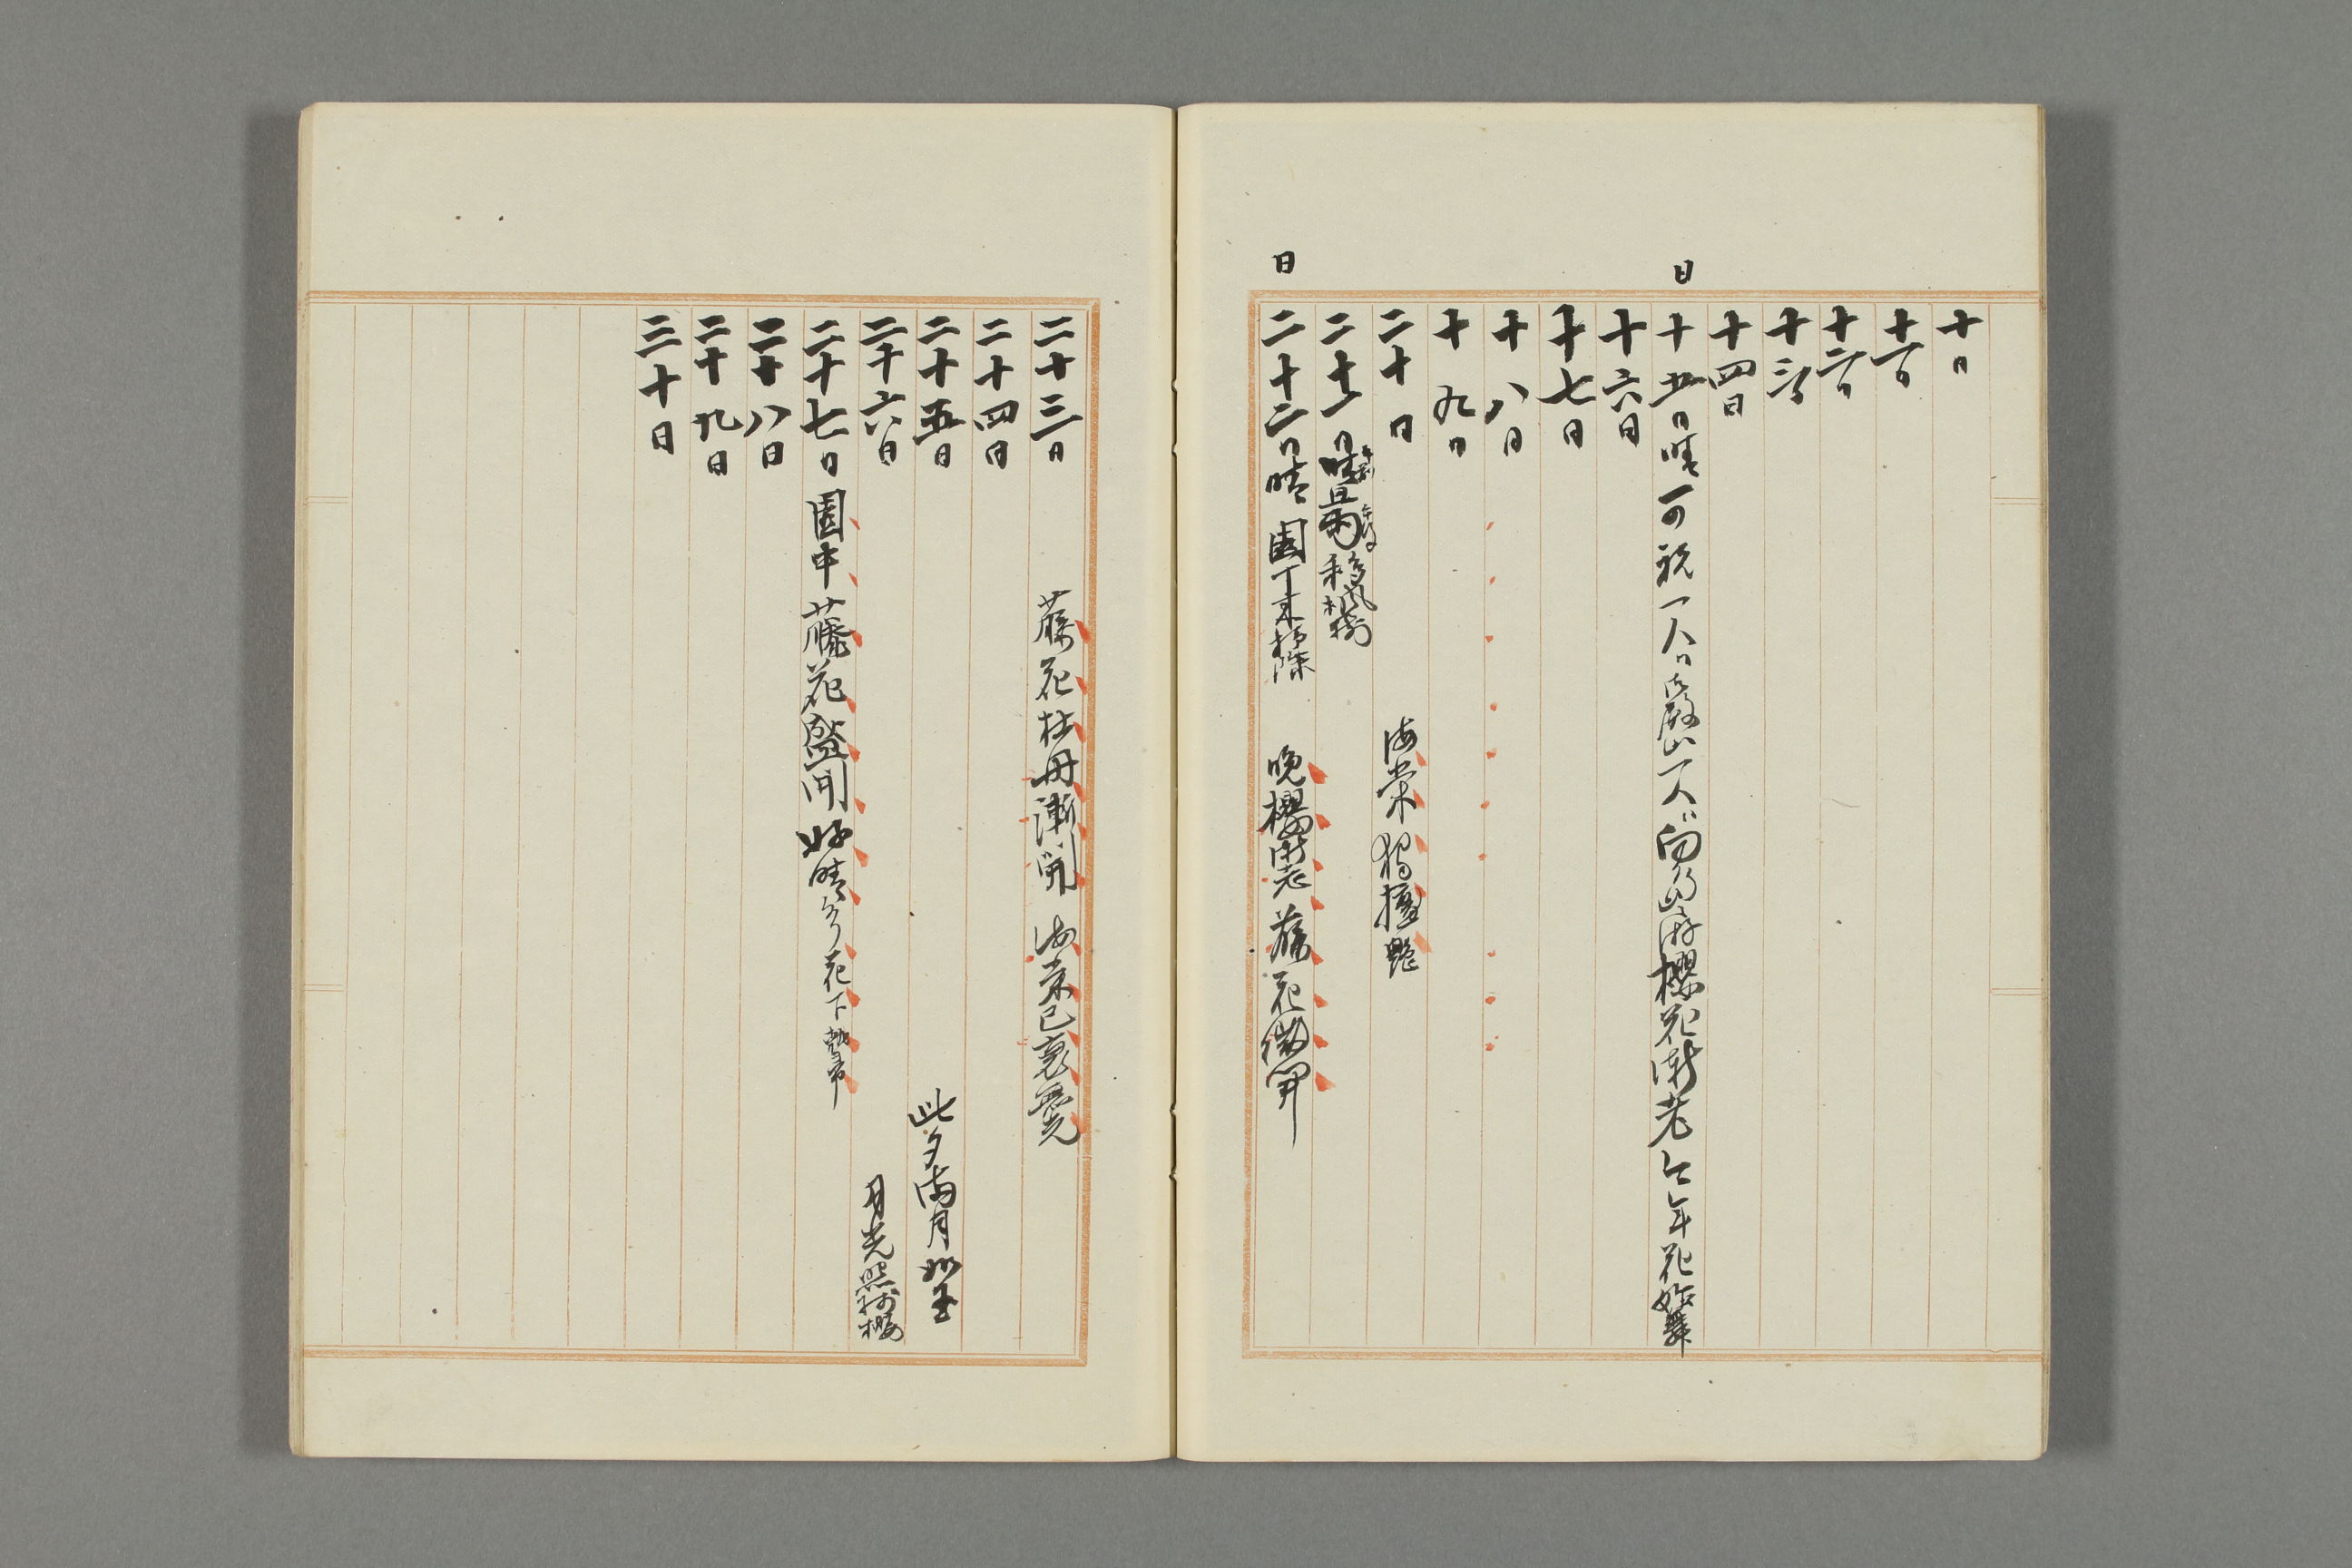 十日
十一日
十二日
十三日
十四日
日
十五日晴 一可祝一人 山一人 向 山游櫻花漸老 今年花 
十六日
十七日
十八日
十九日
二十日 海棠獨擅艶
二十一日晴 午前 且雨 午後 移楓樹
日
二十二日晴 園丁来掃除 晩櫻漸老 藤花微開
二十三日 藤花牡丹漸開 海棠已衰
二十四日
二十五日 此夕満月如玉
二十六日 月光照 櫻
二十七日 園中藤花盛開 好晴 花下
二十八日
二十九日
三十日